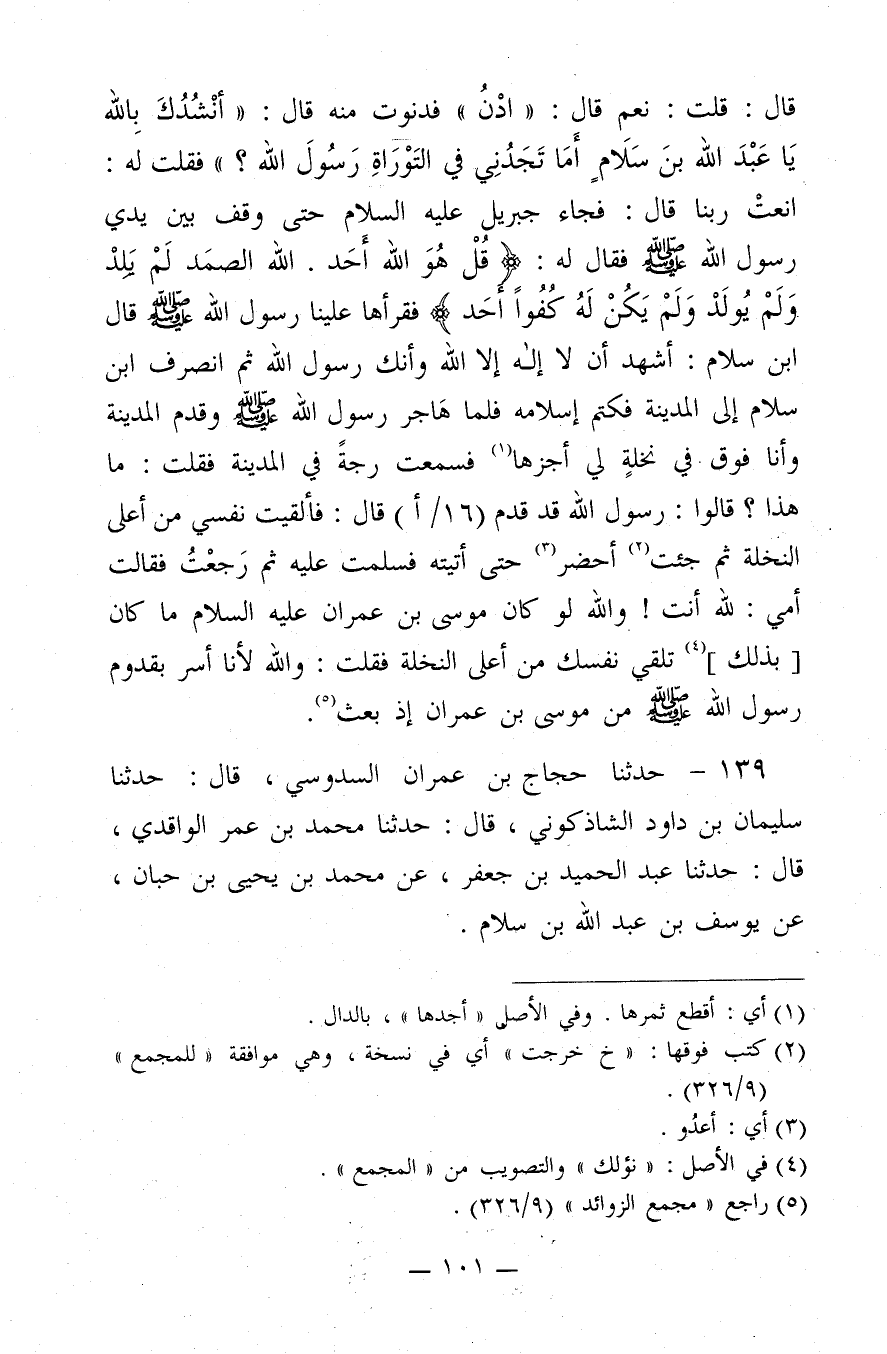 قال : قلت : نعم قال : « ادْنُ » فدنوت منه قال : « أَنْشُدُكَ بِالله
يَا عَبْدَ الله بنَ سَلَامٍ أَمَا تَجَدُنِي في التَوْرَاةِ رَسُولَ الله ؟ » فقلت له :
انعتْ ربنا قال : فجاء جبريل عليه السلام حتى وقف بين يدي
رسول الله ﷺ فقال له : ﴿ قُلْ هُوَ الله أَحَد . الله الصمَد لَمْ يَلِدْ
وَلَمْ يُولَدْ وَلَمْ يَكُنْ لَهُ كُفُواً أَحَد ﴾ فقرأها علينا رسول الله ﷺ قال
ابن سلام : أشهد أن لا إلٰه إلا الله وأنك رسول الله ثم انصرف ابن
سلام إلى المدينة فكتم إسلامه فلما هَاجر رسول الله ﷺ وقدم المدينة
وأنا فوق في نخلةٍ لي أجزها(١) فسمعت رجةً في المدينة فقلت : ما
هذا ؟ قالوا : رسول الله قد قدم (١٦/ أ ) قال : فألقيت نفسي من أعلى
النخلة ثم جئت(٢) أحضر(٣) حتى أتيته فسلمت عليه ثم رَجعْتُ فقالت
أمي : لله أنت ! والله لو كان موسى بن عمران عليه السلام ما كان
[ بذلك ](٤) تلقي نفسك من أعلى النخلة فقلت : والله لأنا أسر بقدوم
رسول الله ﷺ من موسى بن عمران إذ بعث(٥).
١٣٩ – حدثنا حجاج بن عمران السدوسي ، قال : حدثنا
سليمان بن داود الشاذكوني ، قال : حدثنا محمد بن عمر الواقدي ،
قال : حدثنا عبد الحميد بن جعفر ، عن محمد بن يحيى بن حبان ،
عن يوسف بن عبد الله بن سلام .
(١) أي : أقطع ثمرها . وفي الأصل « أجدها » ، بالدال .
(٢) كتب فوقها : « خ خرجت » أي في نسخة ، وهي موافقة « للمجمع »
(٣٢٦/٩) .
(٣) أي : أعدُو .
(٤) في الأصل : « نؤلك » والتصويب من « المجمع » .
(٥) راجع « مجمع الزوائد » (٣٢٦/٩) .
— ١٠١ —